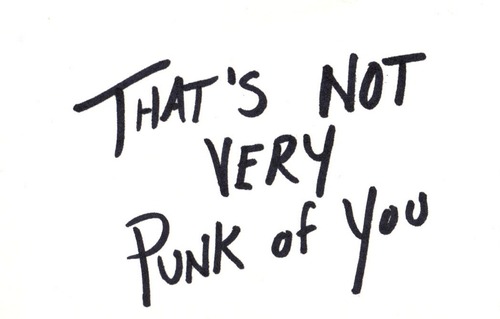 THAT'S NOT
VERY
PUNK of You